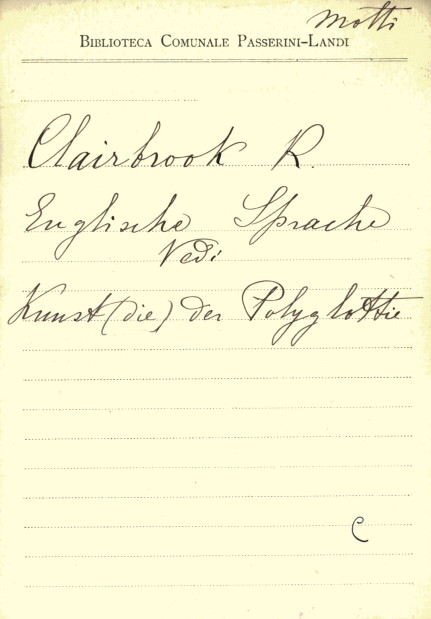 Motti
BIBLIOTECA COMUNALE PASSERINI-LANDI
Clairbrook R.
Englische Sprache
Vedi
Kunst (die) der Polyglottie
C